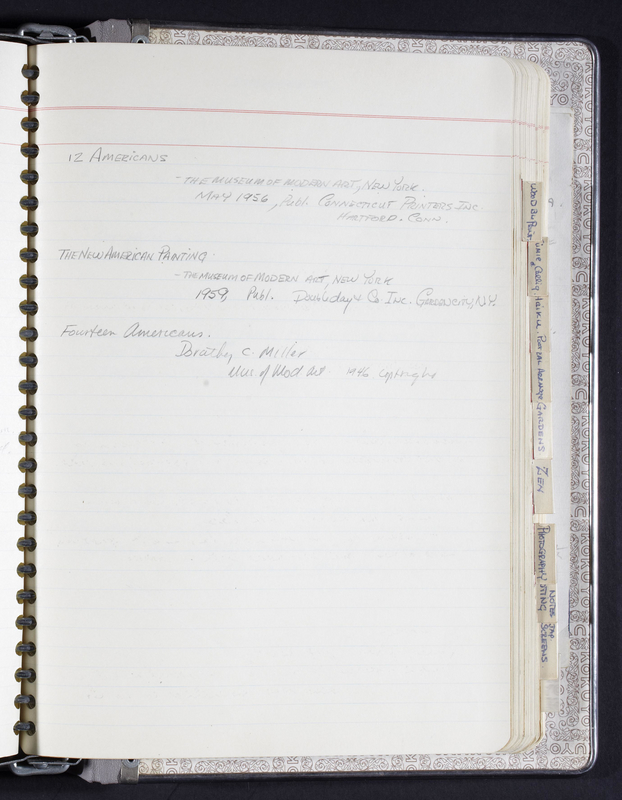 12 AMERICANS
- THE MUSEUM OF MODERN ART, NEW YORK.
MAY 1956, Publ. CONNECTICUT PRINTERS INC.
HARTFORD. CONN.
THE NEW AMERICAN PAINTING
- THE MUSEUM OF MODERN ART, NEW YORK
1959, Publ. Doubleday & Co Inc. GARDEN CITY, N.Y.
Fourteen Americans.
Dorothy C. Miller
Mus. of Mod Art 1946 copyright
HAIKU.
GARDENS
ZEN
PHOTOGRAPHY
NOTES JAP.
SCREENS
KOKUYO